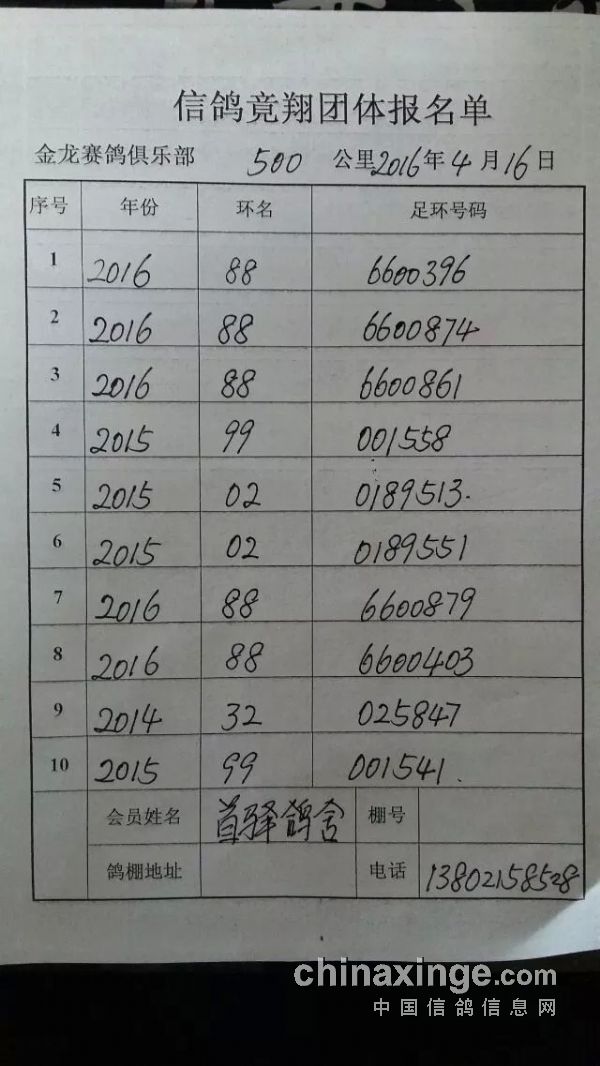 信鸽竟翔团体报名单
金龙赛鸽俱乐部 500 公里2016年4月16日
序号 年份 环名 足环号码
1 2016 88 6600396
2 2016 88 6600874
3 2016 88 6600861
4 2015 99 001558
5 2015 02 0189513.
6 2015 02 0189551
7 2016 88 6600879
8 2016 88 6600403
9 2014 32 025847
10 2015 99 001541.
会员姓名 首驿鸽舍 棚号
鸽棚地址 电话 13802158528
chinaxinge.com
中国信鸽信息网